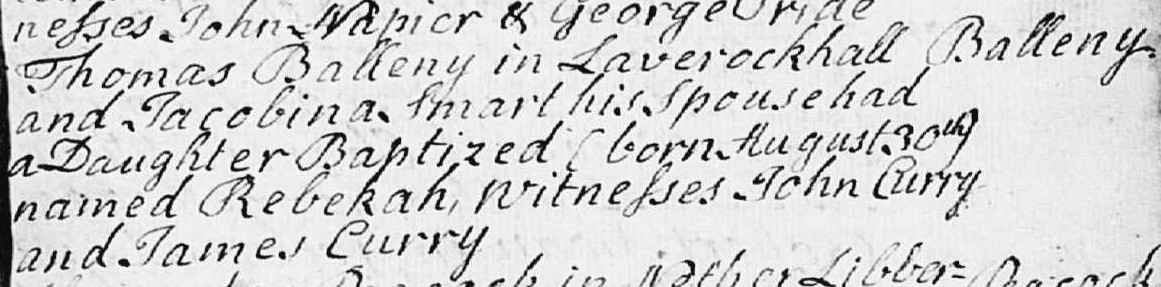 nesses John Napier & George Pride
Thomas Balleny in Laverockhall Balleny
and Jacobina Smart his Spouse had
a Daughter Baptized (born August 30th)
named Rebekah, Witnesses John Curry
and James Curry
in Nether Libber= Peacock